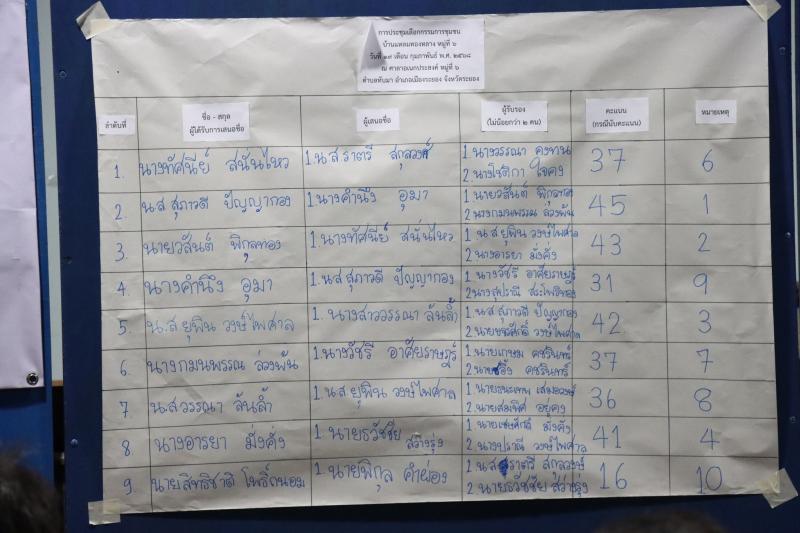 การประชุมเลือกกรรมการชุมชน
บ้านแหลมทองหลาง หมู่ที่ ๖
วันที่ ๑๙ เดือน กุมภาพันธ์ พ.ศ. ๒๕๖๘
ณ ศาลาอเนกประสงค์ หมู่ที่ ๖
ตำบลทับมา อำเภอเมืองระยอง จังหวัดระยอง
ลำดับที่ ชื่อ - สกุล ผู้ได้รับการเสนอชื่อ ผู้เสนอชื่อ ผู้รับรอง (ไม่น้อยกว่า ๒ คน) คะแนน (กรณีนับคะแนน) หมายเหตุ
1. นางทัศนีย์ สนั่นไหว 1.น.ส ราตรี สกุลวงศ์ 1.นางวรรณา คงทาน 37 6
2.นางโชติกา ใจคง
2. น.ส สุภาวดี ปัญญากอง 1.นางคำนึง อุมา 1.นายวสันต์ พิกุลทอง 45 1
2.นางกมนพรรณ ล่วงพ้น
3. นายวสันต์ พิกุลทอง 1.นางทัศนีย์ สนั่นไหว 1.น.ส ยุพิน วงษ์ไพศาล 43 2
2.นางอารยา มั่งคั่ง
4. นางคำนึง อุมา 1.น.ส สุภาวดี ปัญญากอง 1.นางวัชรี อาศัยราษฎร์ 31 9
2.นางสุปราณี
5. น.ส ยุพิน วงษ์ไพศาล 1. นางสาววรรณา ล้นล้ำ 1.น.ส สุภาวดี ปัญญากอง 42 3
2.วงษ์ไพศาล
6. นางกมนพรรณ ล่วงพ้น 1.นางวัชรี อาศัยราษฎร์ 1.นายเกษม คชรินทร์ 37 7
2.คชรินทร์
7. น.ส วรรณา ล้นล้ำ 1.น.ส ยุพิน วงษ์ไพศาล 1.เสมอวงษ์ 36 8
2.นายสมพิศ อยู่คง
8 นางอารยา มั่งคั่ง 1. นายธวัชชัย สว่างรุ่ง 1.มั่งคั่ง 41 4
2.นางปราณี วงษ์ไพศาล
9. นายสิทธิชาติ โพธิ์ถนอม 1.นายพิกุล คำผ่อง 1.น.ส ราตรี สกุลวงษ์ 16 10
2.นายธวัชชัย สว่างรุ่ง